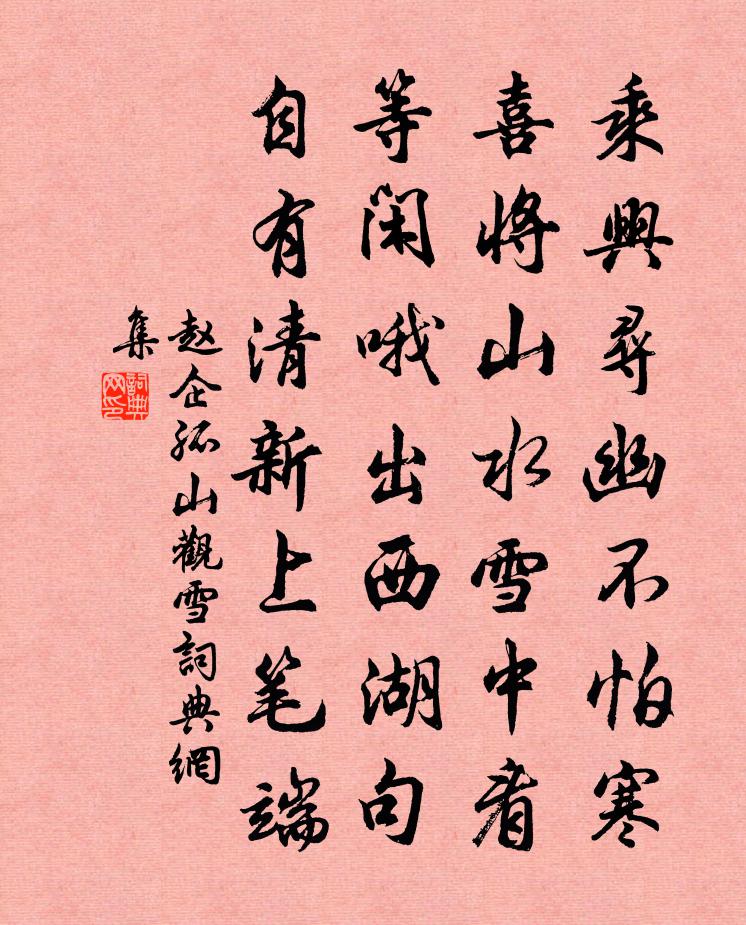 乘興尋幽不怕寒
喜將山水雪中看
等閑哦出西湖句
自有清新上笔端
赵企孤山觀雪詞典網
集
詞典
网印